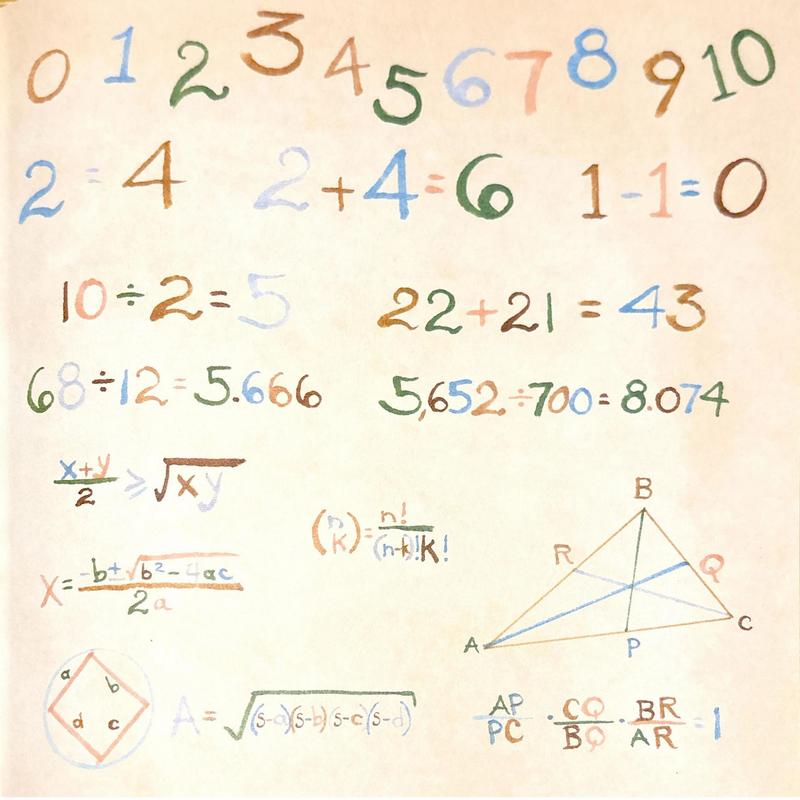 0 1 2 3 4 5 6 7 8 9 10
2 = 4 2+4=6 1-1=0
10÷2=5 22+21=43
68÷12=5.666 5,652÷700=8.074
(x+y)/2 ≥ √(xy)
(n k) = n!/((n-k)!k!)
x = (-b±√(b²-4ac))/(2a)
B
R Q
A P C
a b
d c
A = √((s-a)(s-b)(s-c)(s-d))
AP/PC · CQ/BQ · BR/AR = 1